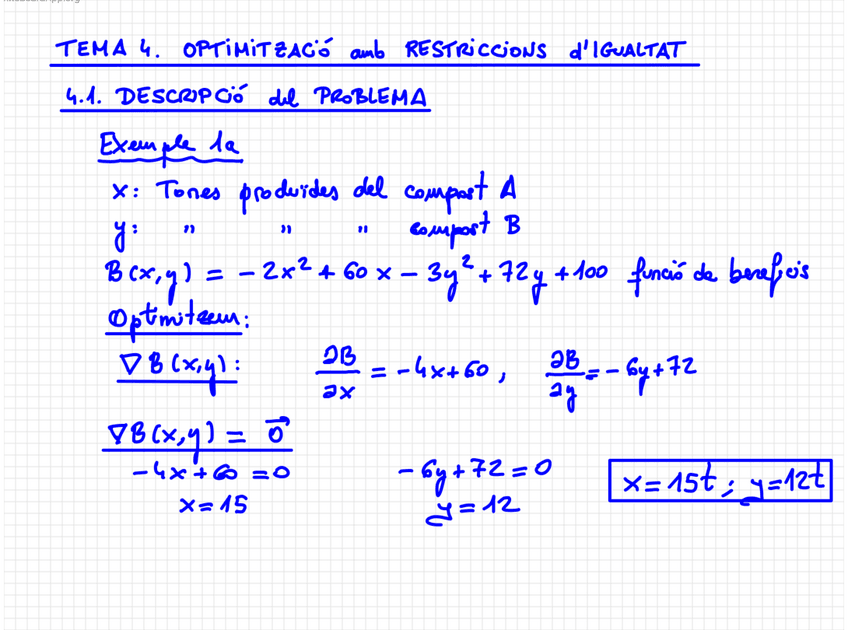 TEMA 4. OPTIMITZACIÓ amb RESTRICCIONS d'IGUALTAT
4.1. DESCRIPCIÓ del PROBLEMA
Exemple 1a
x: Tones produïdes del compost A
y: " " " compost B
B(x,y) = -2x² + 60x - 3y² + 72y + 100 funció de beneficis
Optimitzem:
∇B(x,y): ∂B/∂x = -4x+60, ∂B/∂y = -6y+72
∇B(x,y) = 0⃗
-4x+60=0 -6y+72=0
x=15 y=12 x=15t; y=12t